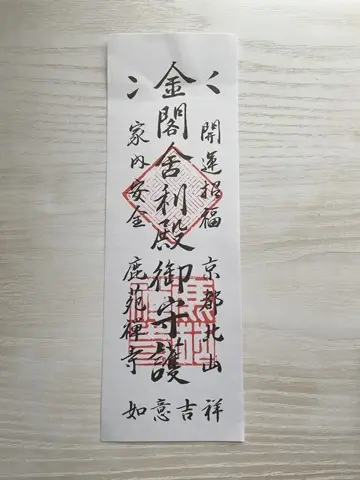 開運招福 京都北山
金閣舍利殿御守護
家内安全 鹿苑禅寺
如意吉祥